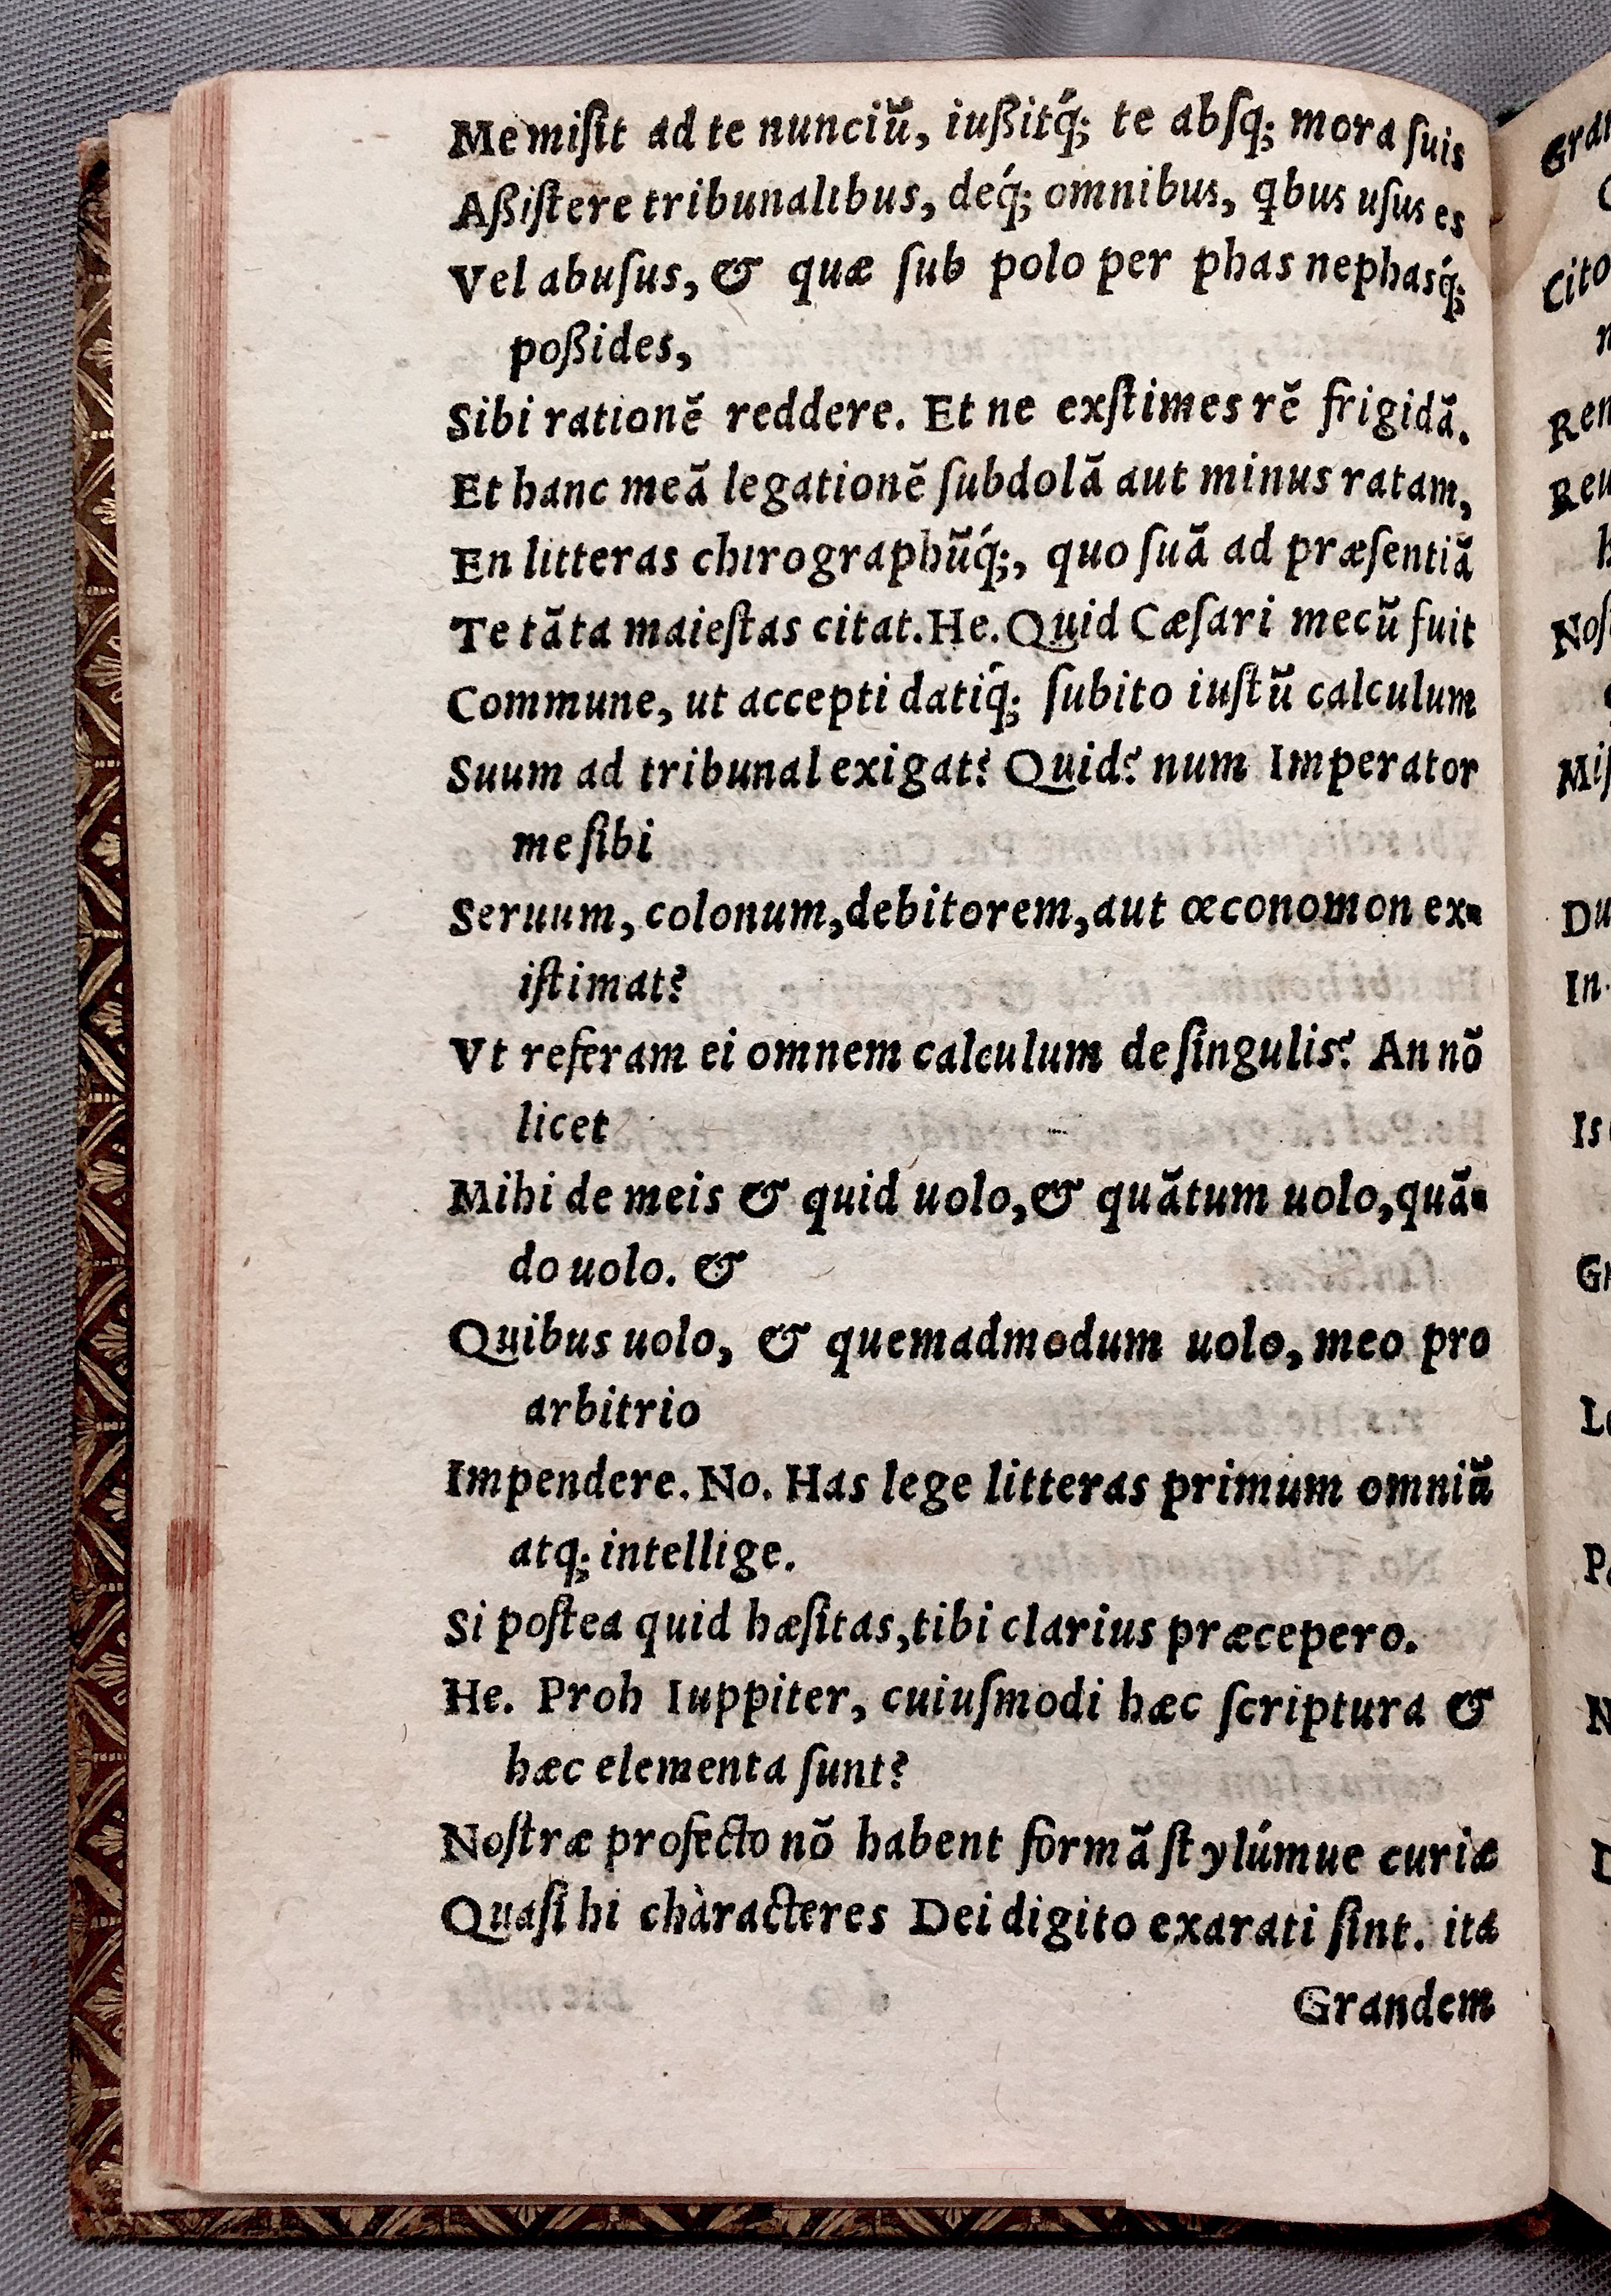 Me misit ad te nunciū, iußitq́; te absq; mora suis
Aßistere tribunalibus, deq́; omnibus, qbus usus es
Vel abusus, & quæ sub polo per phas nephasq́;
poßides,
Sibi rationē reddere. Et ne exstimes rē frigidā.
Et hanc meā legationē subdolā aut minus ratam,
En litteras chirographūq́;, quo suā ad præsentiā
Te tāta maiestas citat. He. Quid Cæsari mecū fuit
Commune, ut accepti datiq́; subito iustū calculum
Suum ad tribunal exigat? Quid? num Imperator
me sibi
Seruum, colonum, debitorem, aut œconomon ex-
istimat?
Vt referam ei omnem calculum de singulis? An nō
licet
Mihi de meis & quid uolo, & quātum uolo, quā-
do uolo. &
Quibus uolo, & quemadmodum uolo, meo pro
arbitrio
Impendere. No. Has lege litteras primum omniū
atq; intellige.
Si postea quid hæsitas, tibi clarius præcepero.
He. Proh Iuppiter, cuiusmodi hæc scriptura &
hæc elementa sunt?
Nostræ profecto nō habent formā stylúmue curiæ
Quasi hi chàracteres Dei digito exarati sint. ita
Grandem